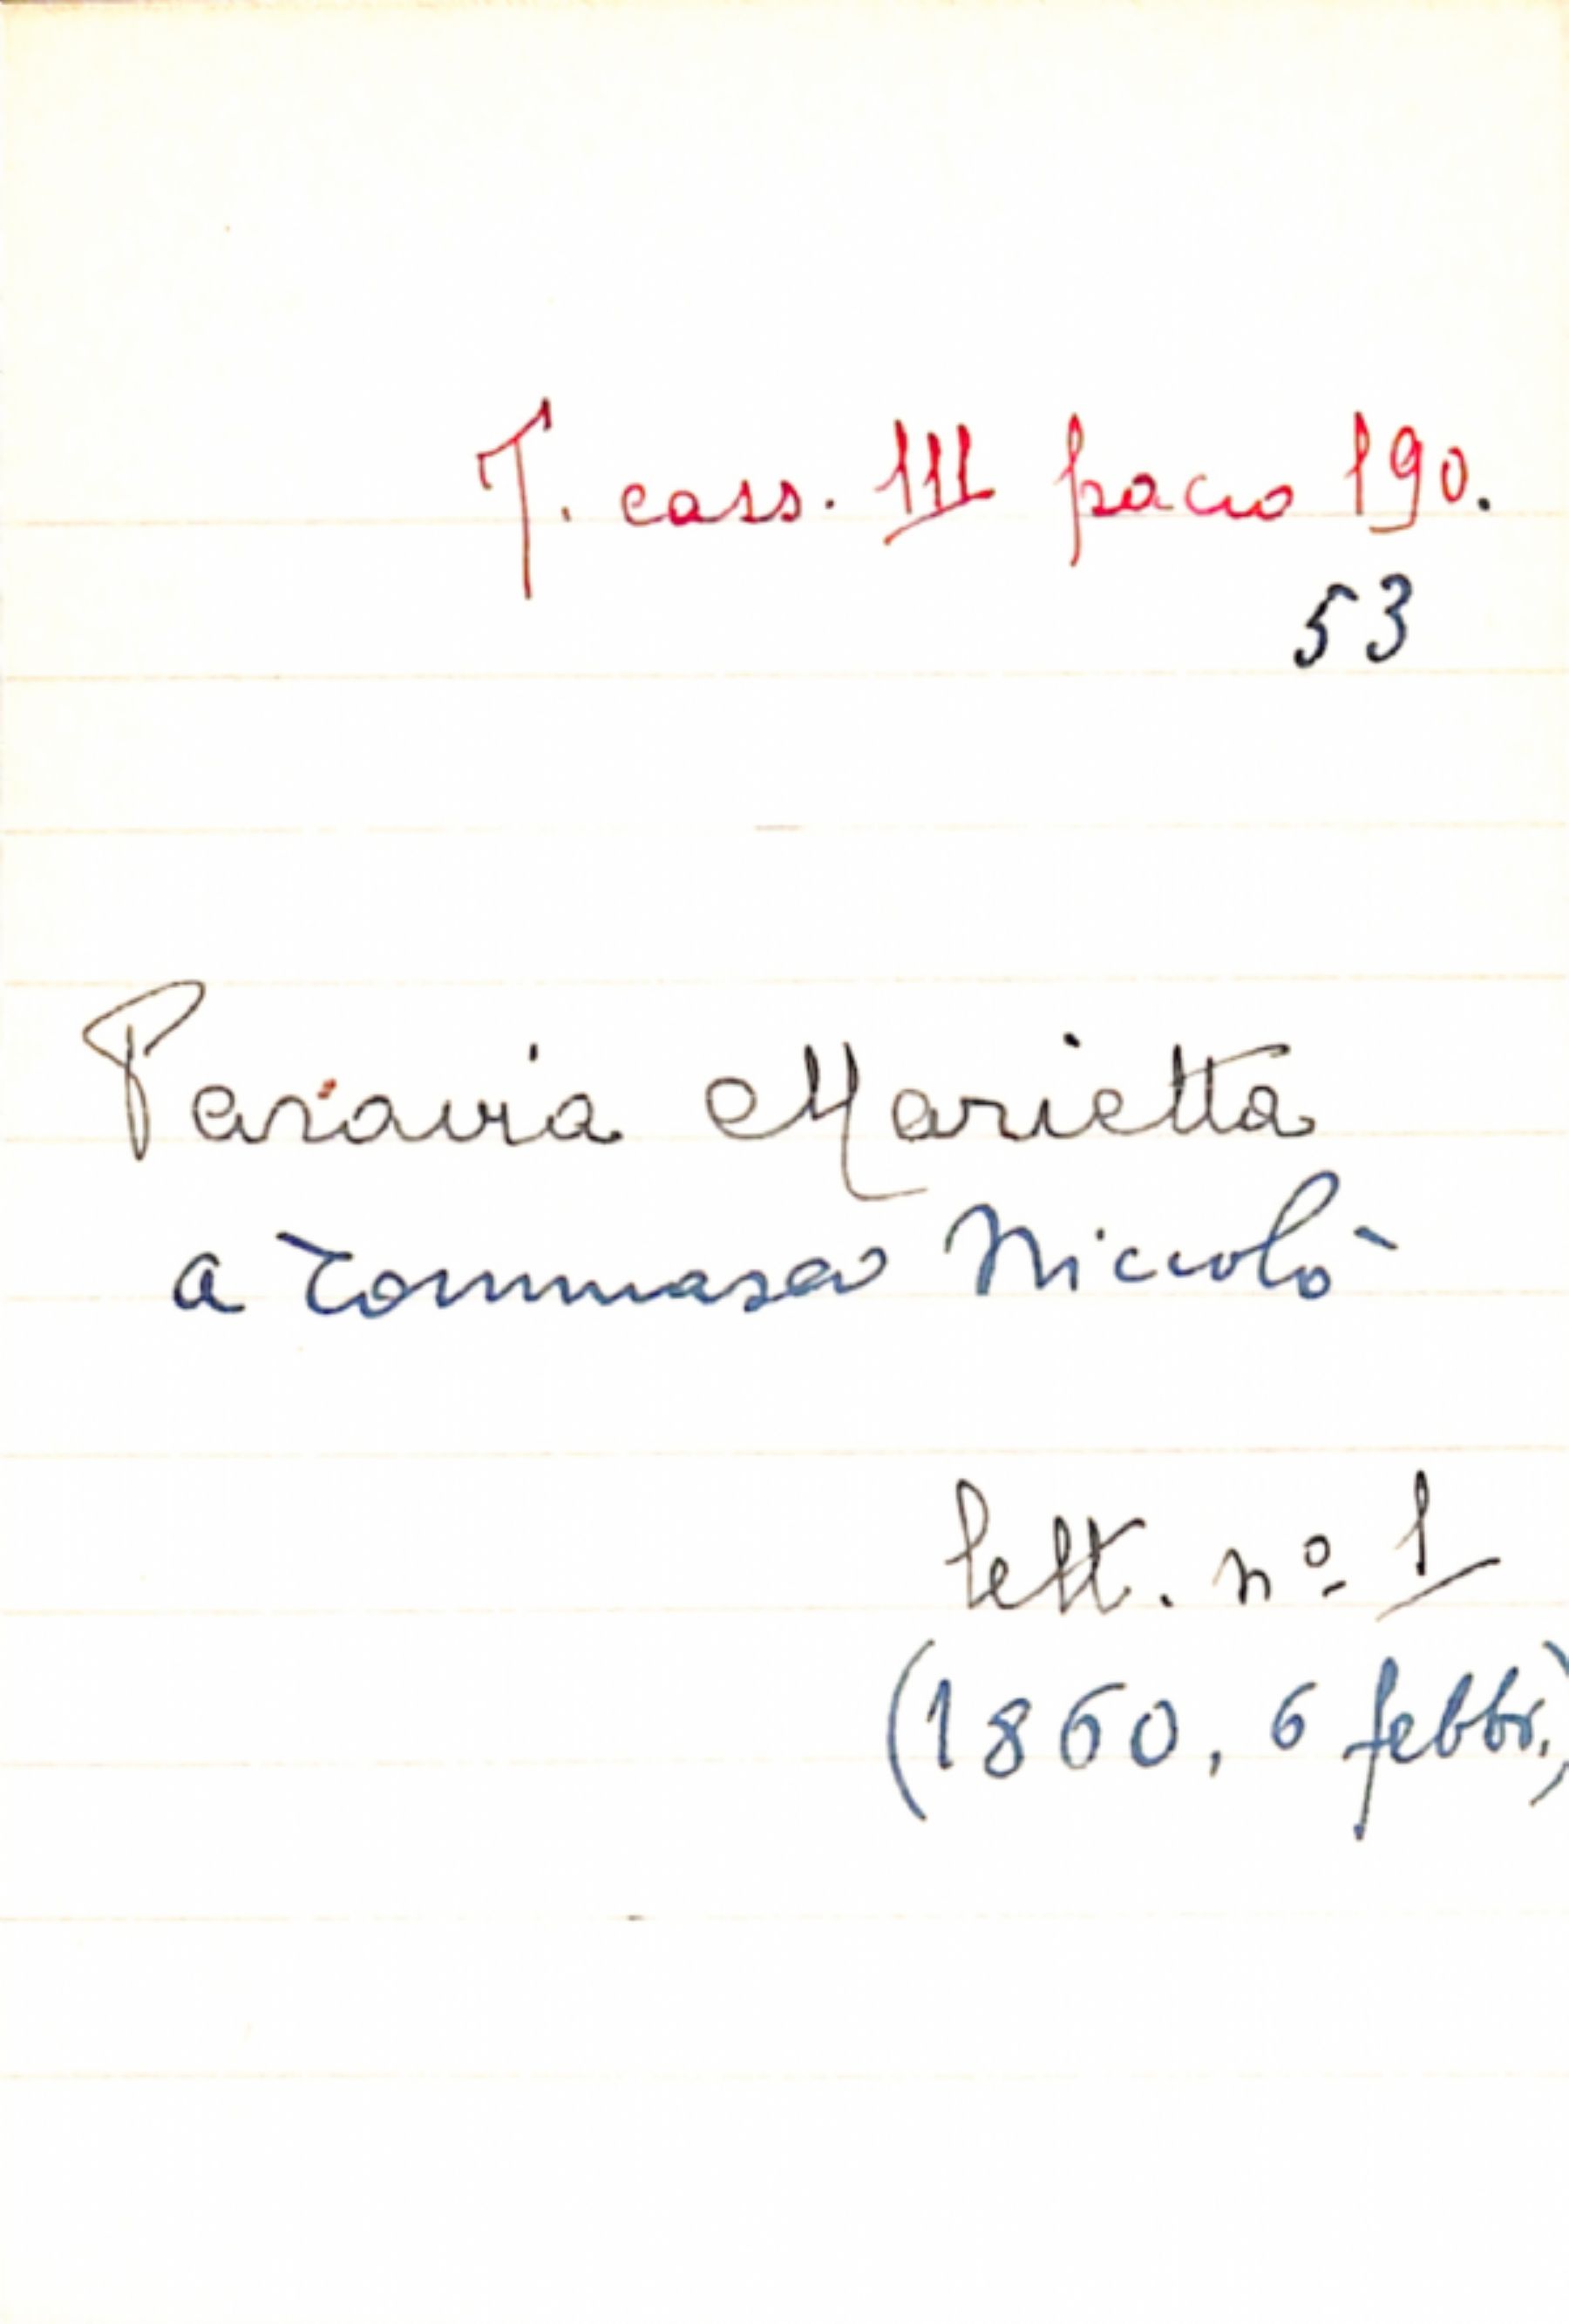 T. cass. III pacco 190.
53
Paravia Marietta
a Tommaseo Niccolò
lett. nº 1
(1860, 6 febbr.)